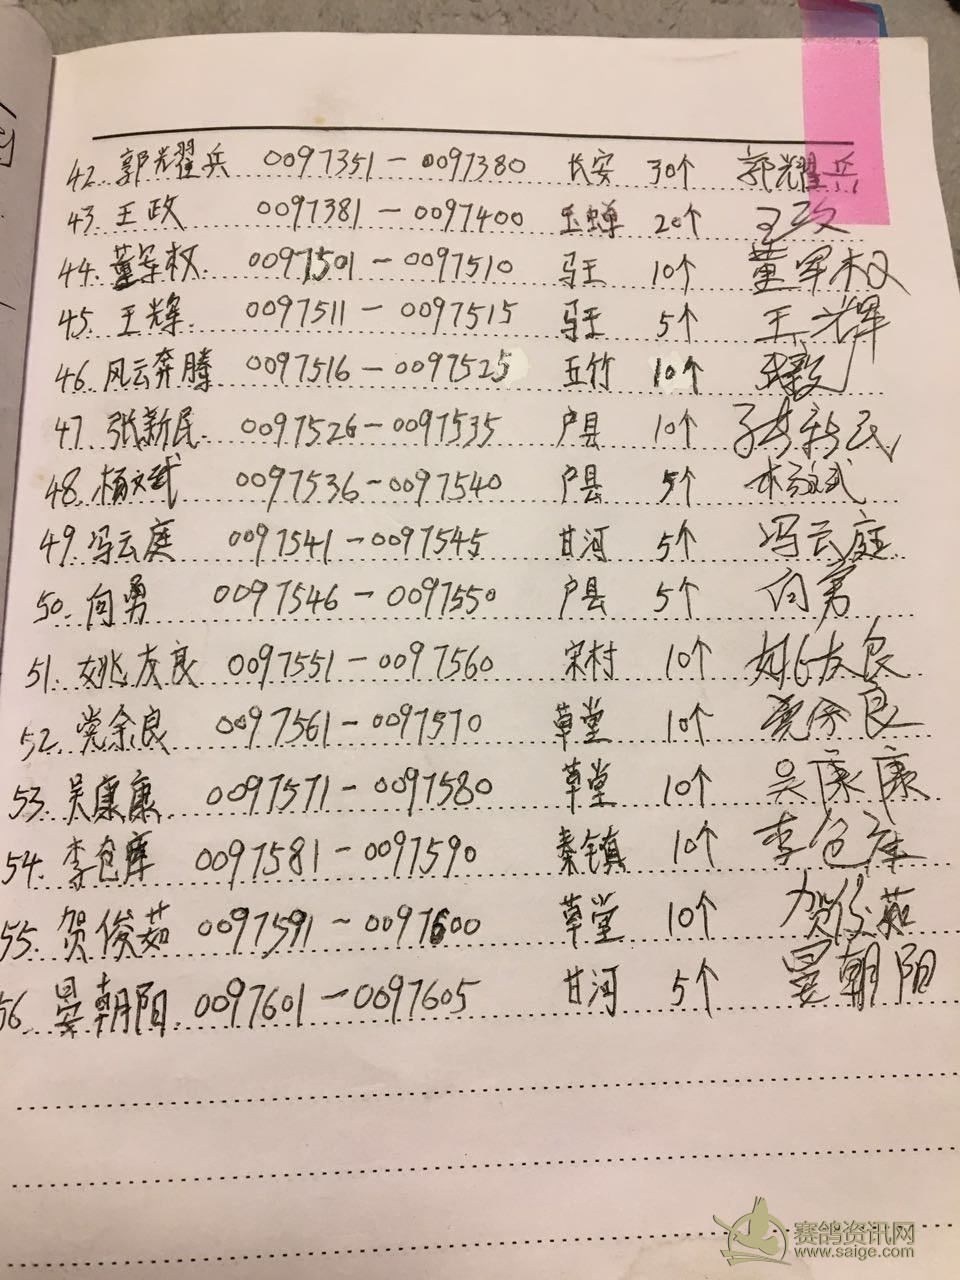 42. 郭耀兵 0097351-0097380 长安 30个 郭耀兵
43. 王政 0097381-0097400 玉蝉 20个 王政
44. 董军权 0097501-0097510 马王 10个 董军权
45. 王辉 0097511-0097515 马王 5个 王辉
46. 风云奔腾 0097516-0097525 五竹 10个
47. 张新民 0097526-0097535 户县 10个 张新民
48. 杨文斌 0097536-0097540 户县 5个 杨文斌
49. 冯云庭 0097541-0097545 甘河 5个 冯云庭
50. 向勇 0097546-0097550 户县 5个 向勇
51. 姚友良 0097551-0097560 宋村 10个 姚友良
52. 党余良 0097561-0097570 草堂 10个 党余良
53. 吴康康 0097571-0097580 草堂 10个 吴康康
54. 李仓库 0097581-0097590 秦镇 10个 李仓库
55. 贺俊茹 0097591-0097600 草堂 10个 贺俊茹
56. 晏朝阳 0097601-0097605 甘河 5个 晏朝阳
赛鸽资讯网
www.saige.com